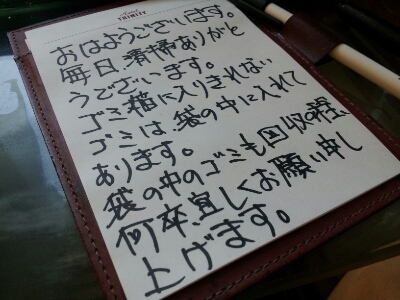 TRINITY
おはようございます。
毎日清掃ありがと
うございます。
ゴミ箱に入りきれない
ゴミは、袋の中に入れて
あります。
袋の中のゴミも回収の程、
何卒宜しくお願い申し
上げます。